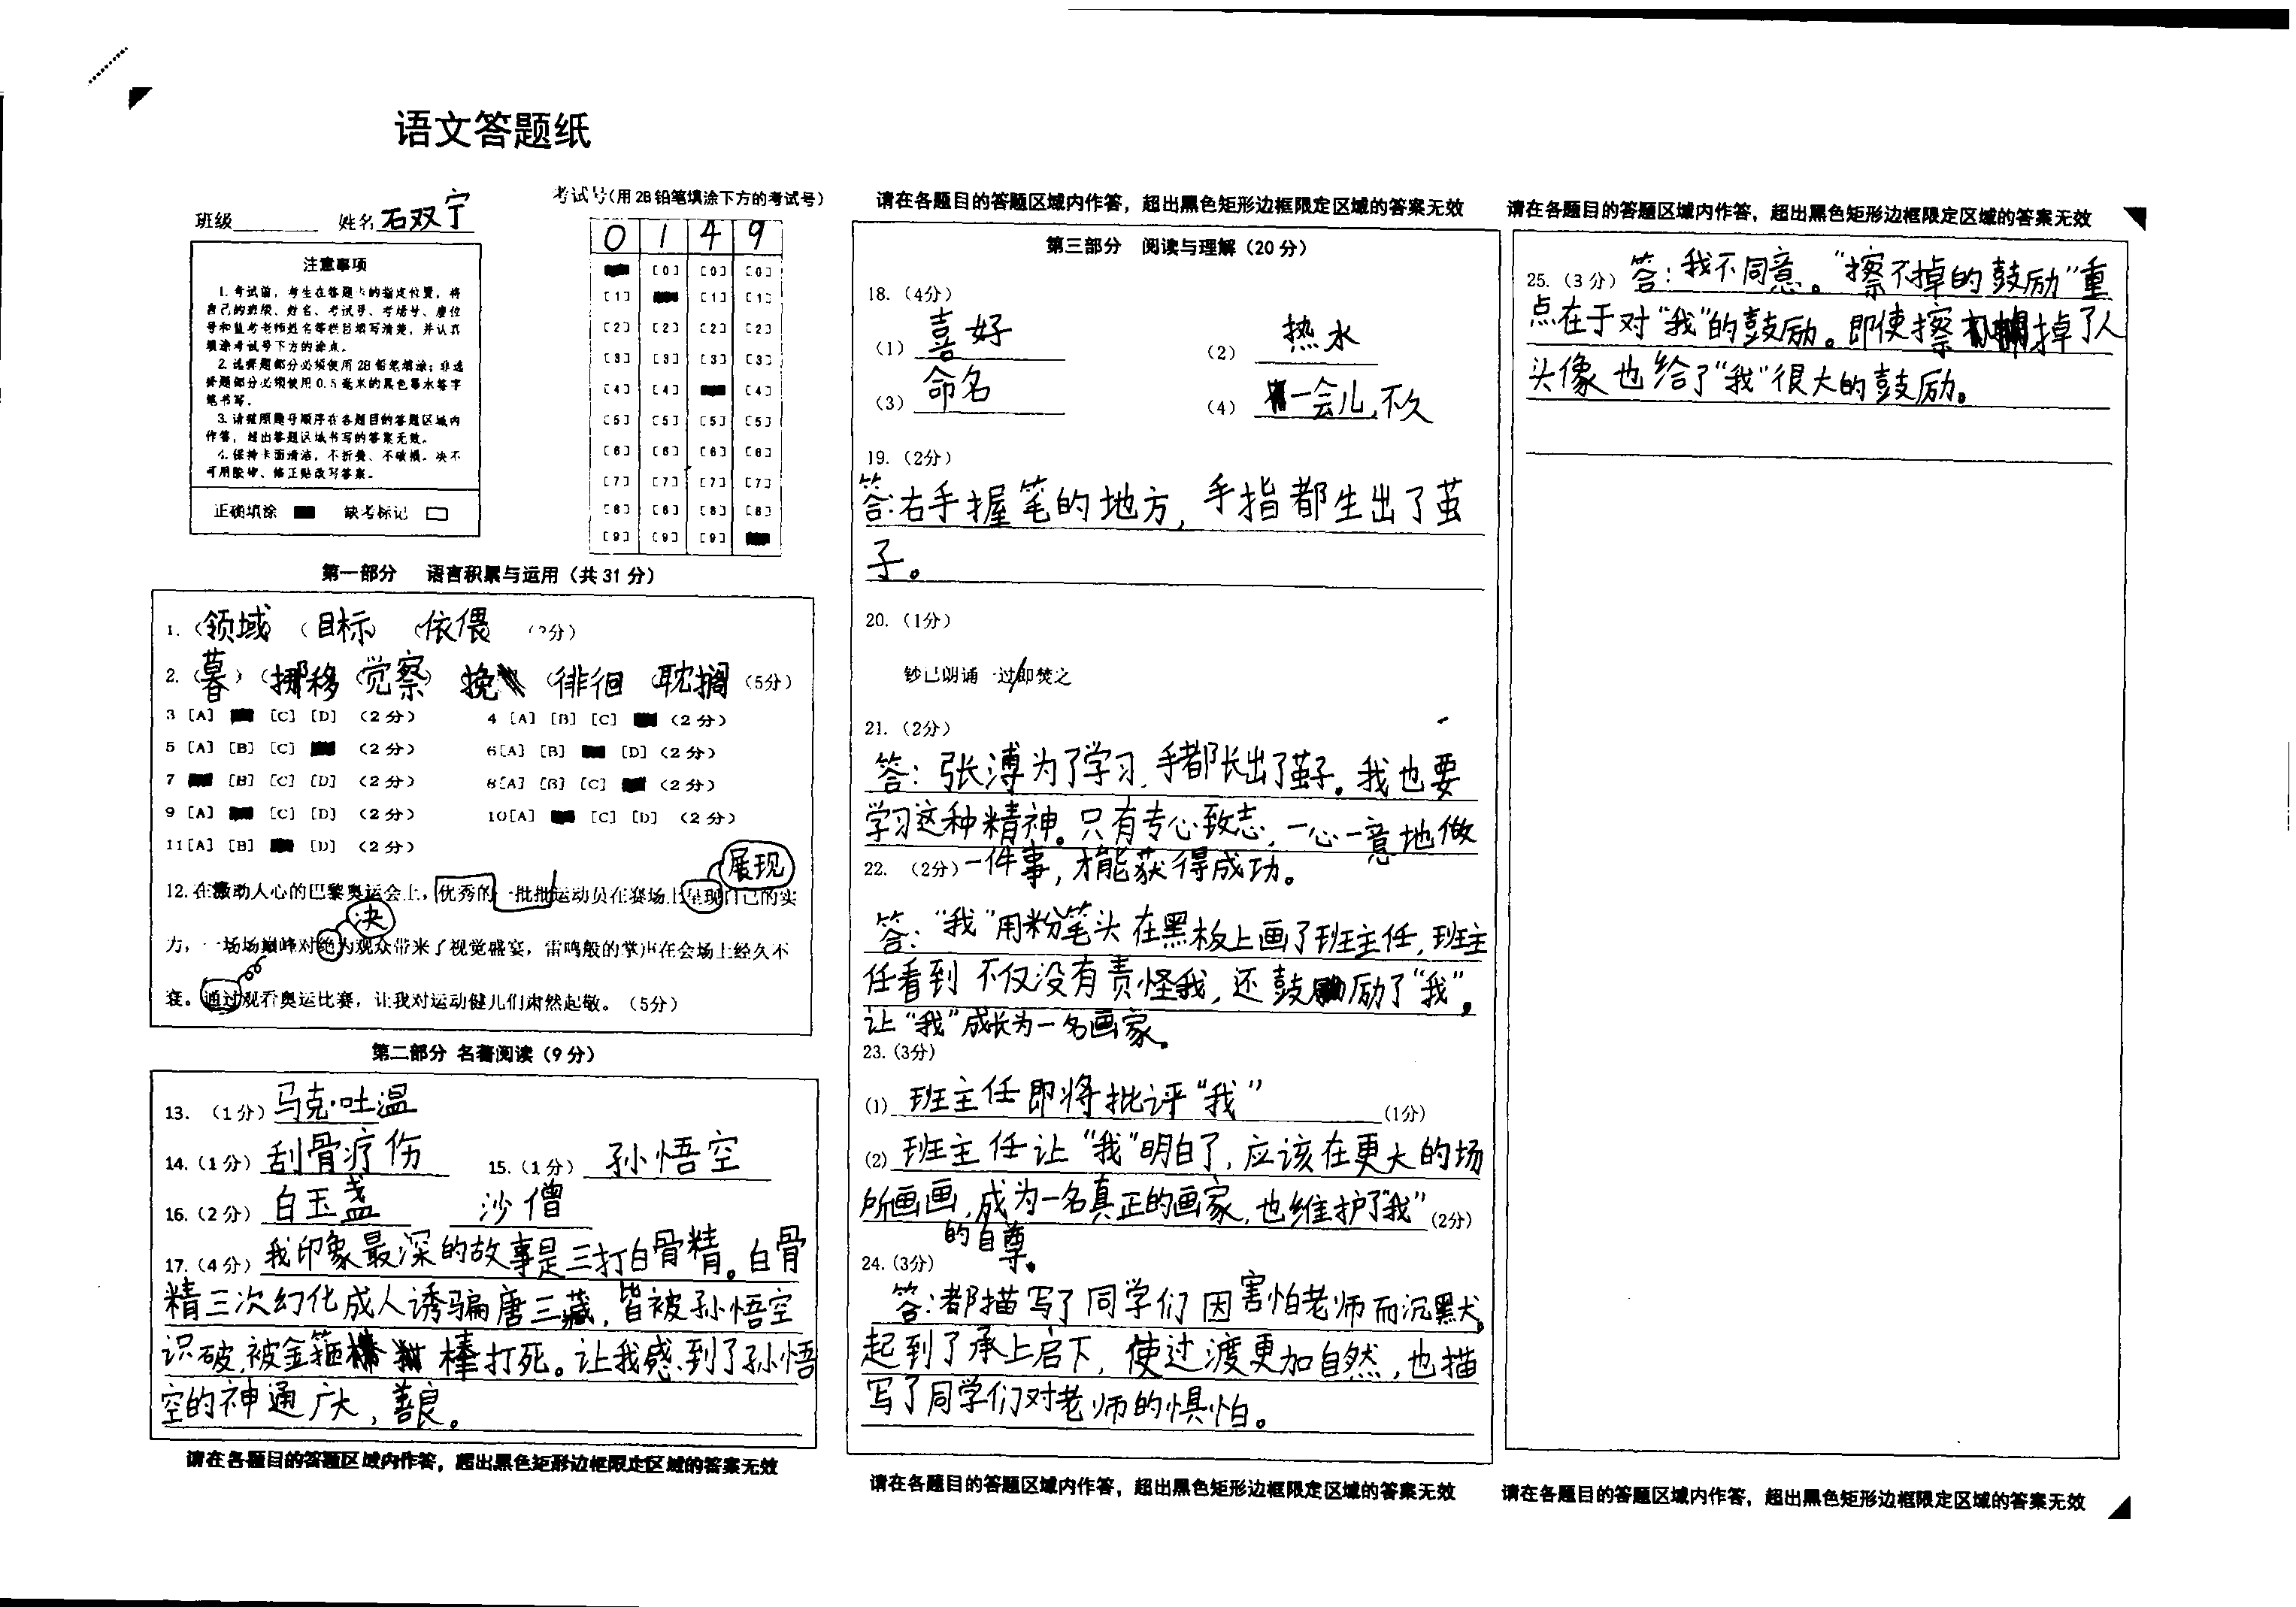 语文答题纸
班级 姓名 石双宁
考试号(用2B铅笔填涂下方的考试号)
0 1 4 9
注意事项
1.考试前,考生在答题卡的指定位置,将
自己的班级、姓名、考试号、考场号、座位
号和监考老师姓名等栏目填写清楚,并认真
填涂考试号下方的涂点。
2.选择题部分必须使用2B铅笔填涂;非选
择题部分必须使用0.5毫米的黑色墨水签字
笔书写。
3.请按照题号顺序在各题目的答题区域内
作答,超出答题区域书写的答案无效。
4.保持卡面清洁,不折叠、不破损。决不
可用胶带、修正贴改写答案。
正确填涂 缺考标记
[0] [0] [0]
[1] [1] [1]
[2] [2] [2] [2]
[3] [3] [3] [3]
[4] [4] [4]
[5] [5] [5] [5]
[6] [6] [6] [6]
[7] [7] [7] [7]
[8] [8] [8] [8]
[9] [9] [9]
第一部分 语言积累与运用(共31分)
1.(领域) (目标) (依偎
2.(暮) (挪移 (觉察) 挽 (徘徊 (耽搁 (5分)
3 [A] [C] [D] (2分) 4 [A] [B] [C] (2分)
5 [A] [B] [C] (2分) 6[A] [B] [D] (2分)
7 [B] [C] [D] (2分) 8[A] [B] [C] (2分)
9 [A] [C] [D] (2分) 10[A] [C] [D] (2分)
11[A] [B] [D] (2分)
展现
12.在激动人心的巴黎奥运会上,优秀的一批批运动员在赛场上呈现自己的实
决
力,一场场巅峰对绝为观众带来了视觉盛宴,雷鸣般的掌声在会场上经久不
衰。通过观看奥运比赛,让我对运动健儿们肃然起敬。(5分)
第二部分 名著阅读(9分)
13.(1分) 马克·吐温
14.(1分) 刮骨疗伤 15.(1分) 孙悟空
16.(2分) 白玉盏 沙僧
17.(4分) 我印象最深的故事是三打白骨精。白骨
精三次幻化成人诱骗唐三藏,皆被孙悟空
识破,被金箍棒打死。让我感到了孙悟
空的神通广大,善良。
请在各题目的答题区域内作答,超出黑色矩形边框限定区域的答案无效
请在各题目的答题区域内作答,超出黑色矩形边框限定区域的答案无效
第三部分 阅读与理解(20分)
18.(4分)
(1) 喜好 (2) 热水
(3) 命名 (4) 一会儿,不久
19.(2分)
答:右手握笔的地方,手指都生出了茧
子。
20.(1分)
钞已朗诵一过/即焚之
21.(2分)
答:张溥为了学习,手都长出了茧子。我也要
学习这种精神。只有专心致志,一心一意地做
22.(2分) 一件事,才能获得成功。
答:“我”用粉笔头在黑板上画了班主任,班主
任看到不仅没有责怪我,还鼓励了“我”,
让“我”成长为一名画家。
23.(3分)
(1) 班主任即将批评“我” (1分)
(2) 班主任让“我”明白了,应该在更大的场
所画画,成为一名真正的画家,也维护了“我” (2分)
的自尊。
24.(3分)
答:都描写了同学们因害怕老师而沉默,
起到了承上启下,使过渡更加自然,也描
写了同学们对老师的惧怕。
请在各题目的答题区域内作答,超出黑色矩形边框限定区域的答案无效
请在各题目的答题区域内作答,超出黑色矩形边框限定区域的答案无效
25.(3分) 答:我不同意。“擦不掉的鼓励”重
点在于对“我”的鼓励。即使擦掉了人
头像也给了“我”很大的鼓励。
请在各题目的答题区域内作答,超出黑色矩形边框限定区域的答案无效